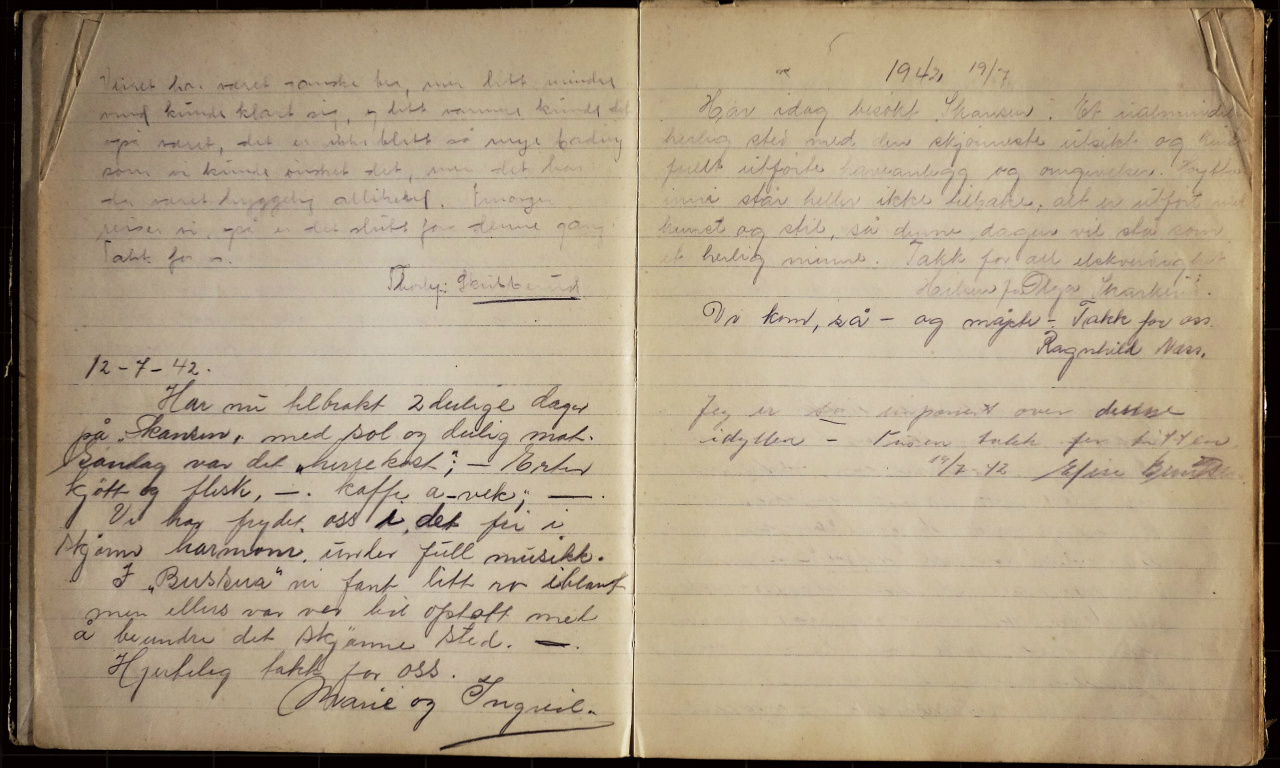 Veiret har været ganske bra, men litt mindre
vind kunde klart sig, og litt varmere kunde det
også været, det er ikke blitt så mye bading
som vi kunde ønsket det, men det har
da været hyggelig allikevel. Imorgen
reiser vi, så er det slutt for denne gang.
Takk for
12-7-42.
Har nu tilbrakt 2 deilige dager
på "Skansen", med sol og deilig mat.
Søndag var det "herrekost"; - Erter
kjøtt og flesk, -. kaffe a-vek; -.
Vi har frydet oss i det fri i
skjønn harmoni under full musikk.
I "Buskua" vi fant litt ro iblant
men ellers var vi optatt med
å beundre det skjønne sted. -.
Hjertelig takk for oss.
Marie og Ingrid.
1942 19/7
Har idag besøkt "Skansen". Et ualmindelig
herlig sted med den skjønneste utsikt og
fullt utførte haveanlegg og omgivelser. Hytten
inni står heller ikke tilbake, alt er utført med
kunst og stil, så denne dagen vil stå som
et herlig minne. Takk for all elskverdighet
Hilsen fra Olga
Vi kom, så - og måpte - Takk for oss.
Ragnhild Næss.
Jeg er imponert over denne
idyllen - Tusen takk for titten
19/7 42